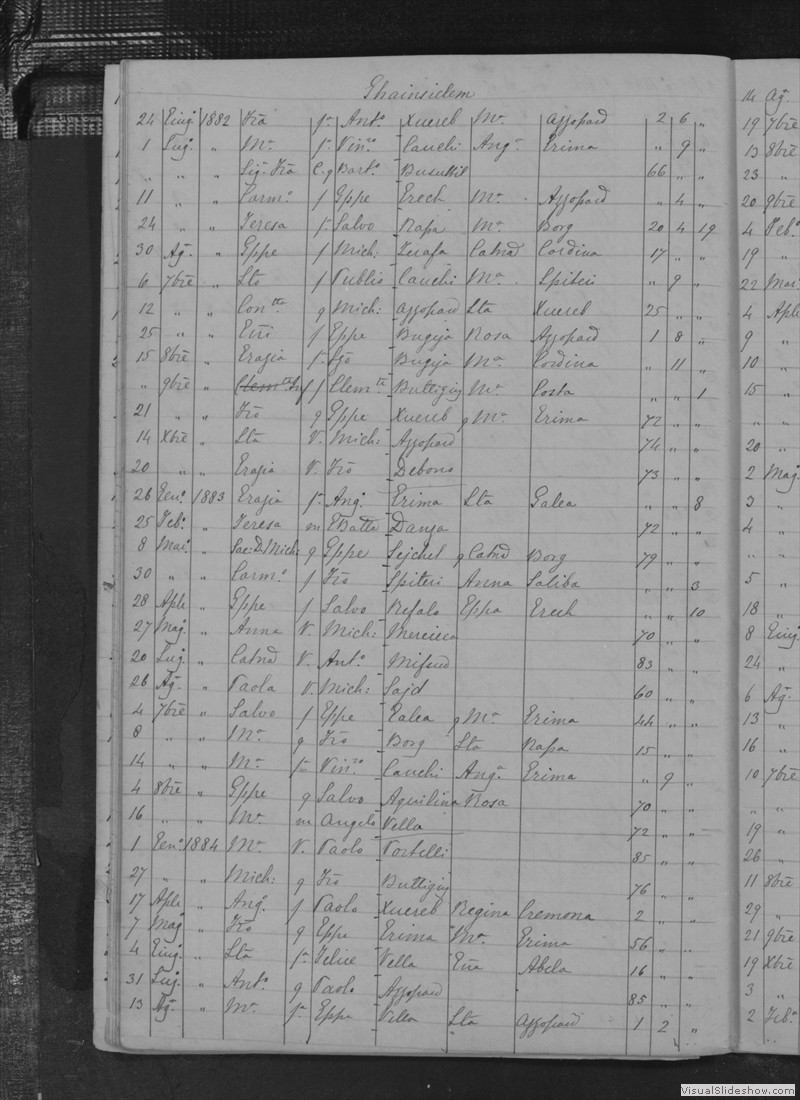 Ghainsielem
24 Giug: 1882 Fra f. Ant.o Xuereb M.a Azzopard 2 6 „
1 Lug. „ M.a f. Vin.o Cauchi Ang.a Grima „ 9 „
„ „ „ Sig. Fra C. g Bart.o Busuttil 66 „ „
11 „ „ Carm.a f Gppe Grech M.a Azzopard „ 4 „
24 „ „ Teresa f. Salvo Rapa M.a Borg 20 4 19
30 Ag. „ Gppe f Mich: Zerafa Catnã Cordina 17 „ „
6 7bre „ Sto f Publio Cauchi M.a Spiteri „ 9 „
12 „ „ Con.tta g Mich: Azzopard Sta Xuereb 25 „ „
25 „ „ f Gppe Bugeja Rosa Azzopard 1 8 „
15 8bre „ Grazia f. Bugeja M.a Cordina „ 11 „
„ 9bre „ f Clem.te Buttigieg M.a Costa „ „ 1
21 „ „ Frõ g Gppe Xuereb g M.a Grima 72 „ „
14 Xbre „ Sta V. Mich: Azzopard 74 „ „
20 „ „ Grazia V. Frõ Debono 73 „ „
26 Gen.o 1883 Grazia f. Ang.o Grima Sta Galea „ „ 8
25 Feb.o „ Teresa m GBatta Danza 72 „ „
8 Mar.o „ Sac: D. Mich: g Gppe Sejchel g Catnã Borg 79 „ „
30 „ „ Carm.o f Frõ Spiteri Anna Saliba „ „ 3
28 Aple „ Gppe f Salvo Refalo Gppa Grech „ „ 10
27 Mag. „ Anna V. Mich: Mercieca 70 „ „
20 Lug. „ Catnã V. Ant.o Mifsud 83 „ „
26 Ag. „ Paola V. Mich: Sajd 60 „ „
4 7bre „ Salvo f Gppe Galea g M.a Grima 44 „ „
8 „ „ M.a g Frõ Borg Sta Rapa 15 „ „
14 „ „ M.a f. Vin.zo Cauchi Ang.a Grima „ 9 „
4 8bre „ Gppe g Salvo Aquilina Rosa 70 „ „
16 „ „ M.a m Angelo Vella 72 „ „
1 Gen.o 1884 M.a V. Paolo Portelli 85 „ „
27 „ „ Mich: g Frõ Buttigieg 76 „ „
17 Aple „ Ang.o f Paolo Xuereb Regina Cremona 2 „ „
7 Mag. „ Frõ g Gppe Grima M.a Grima 56 „ „
4 Giug. „ Sta f. Felice Vella Abela 16 „ „
31 Lug. „ Ant.o g Paolo Azzopard 85 „ „
13 Ag. „ M.a f. Gppe Vella Sta Azzopard 1 2 „
14 Ag.
19 7bre
13 8bre
23 „
20 9bre
4 Feb.o
19 „
22 Mar.
4 Aple
9 „
10 „
15 „
„ „
20 „
2 Mag.
3 „
4 „
„ „
5 „
18 „
8 Giug.
24 „
6 Ag.
13 „
16 „
10 7bre
„ „
19 „
26 „
11 8bre
29 „
21 9bre
19 Xbre
3 „
2 Feb.o
VisualSlideshow.com